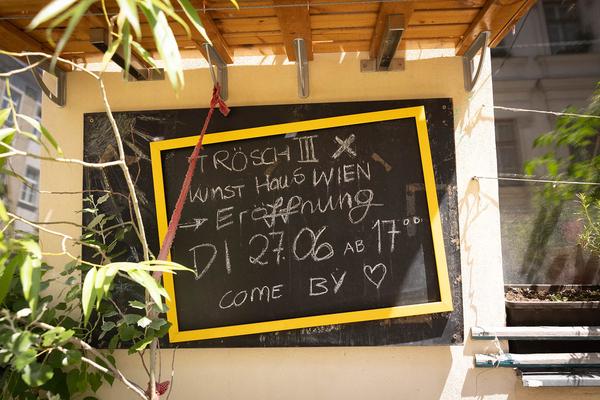 TRÖSCH III X
KUNST HAUS WIEN
→ Eröffnung
DI 27.06 AB 17°°
COME BY ♡